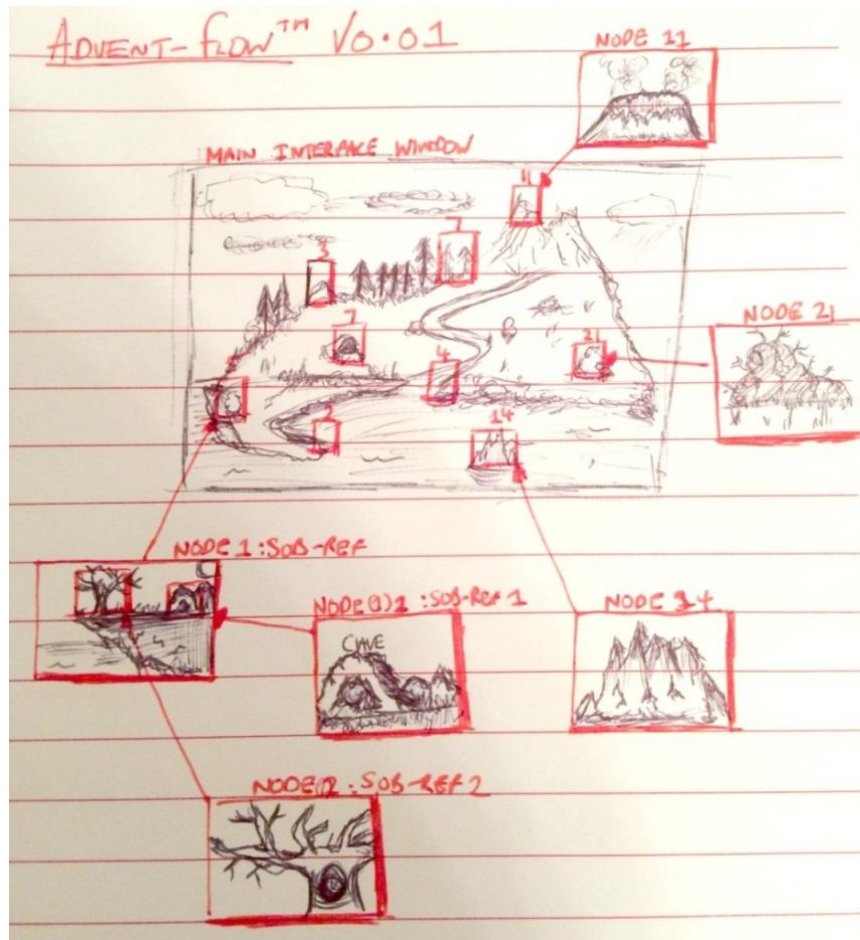 ADVENT-FLOW™ V0.01
NODE 11
MAIN INTERFACE WINDOW
11
7
3
7
21
NODE 21
4
2
14
NODE 1 : SUB-REF
NODE(1)1 : SUB-REF 1
NODE 14
CAVE
NODE(1)2 : SUB-REF 2